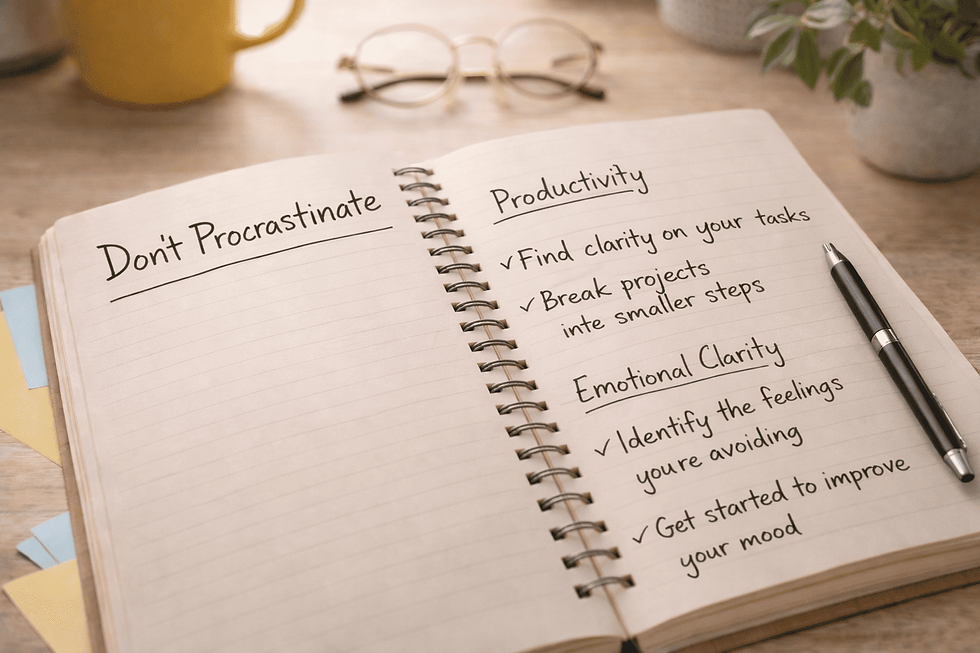 Don't Procrastinate
Productivity
✓ Find clarity on your tasks
✓ Break projects
inte smaller steps
Emotional Clarity
✓ Identify the feelings
youre avoiding
✓ Get started to improve
your mood